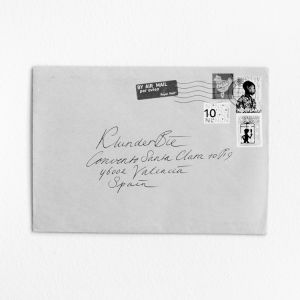 BY AIR MAIL
par avion
Royal Mail
10
KlunderBie
Convento Santa Clara 10 P9
46002 Valencia
Spain